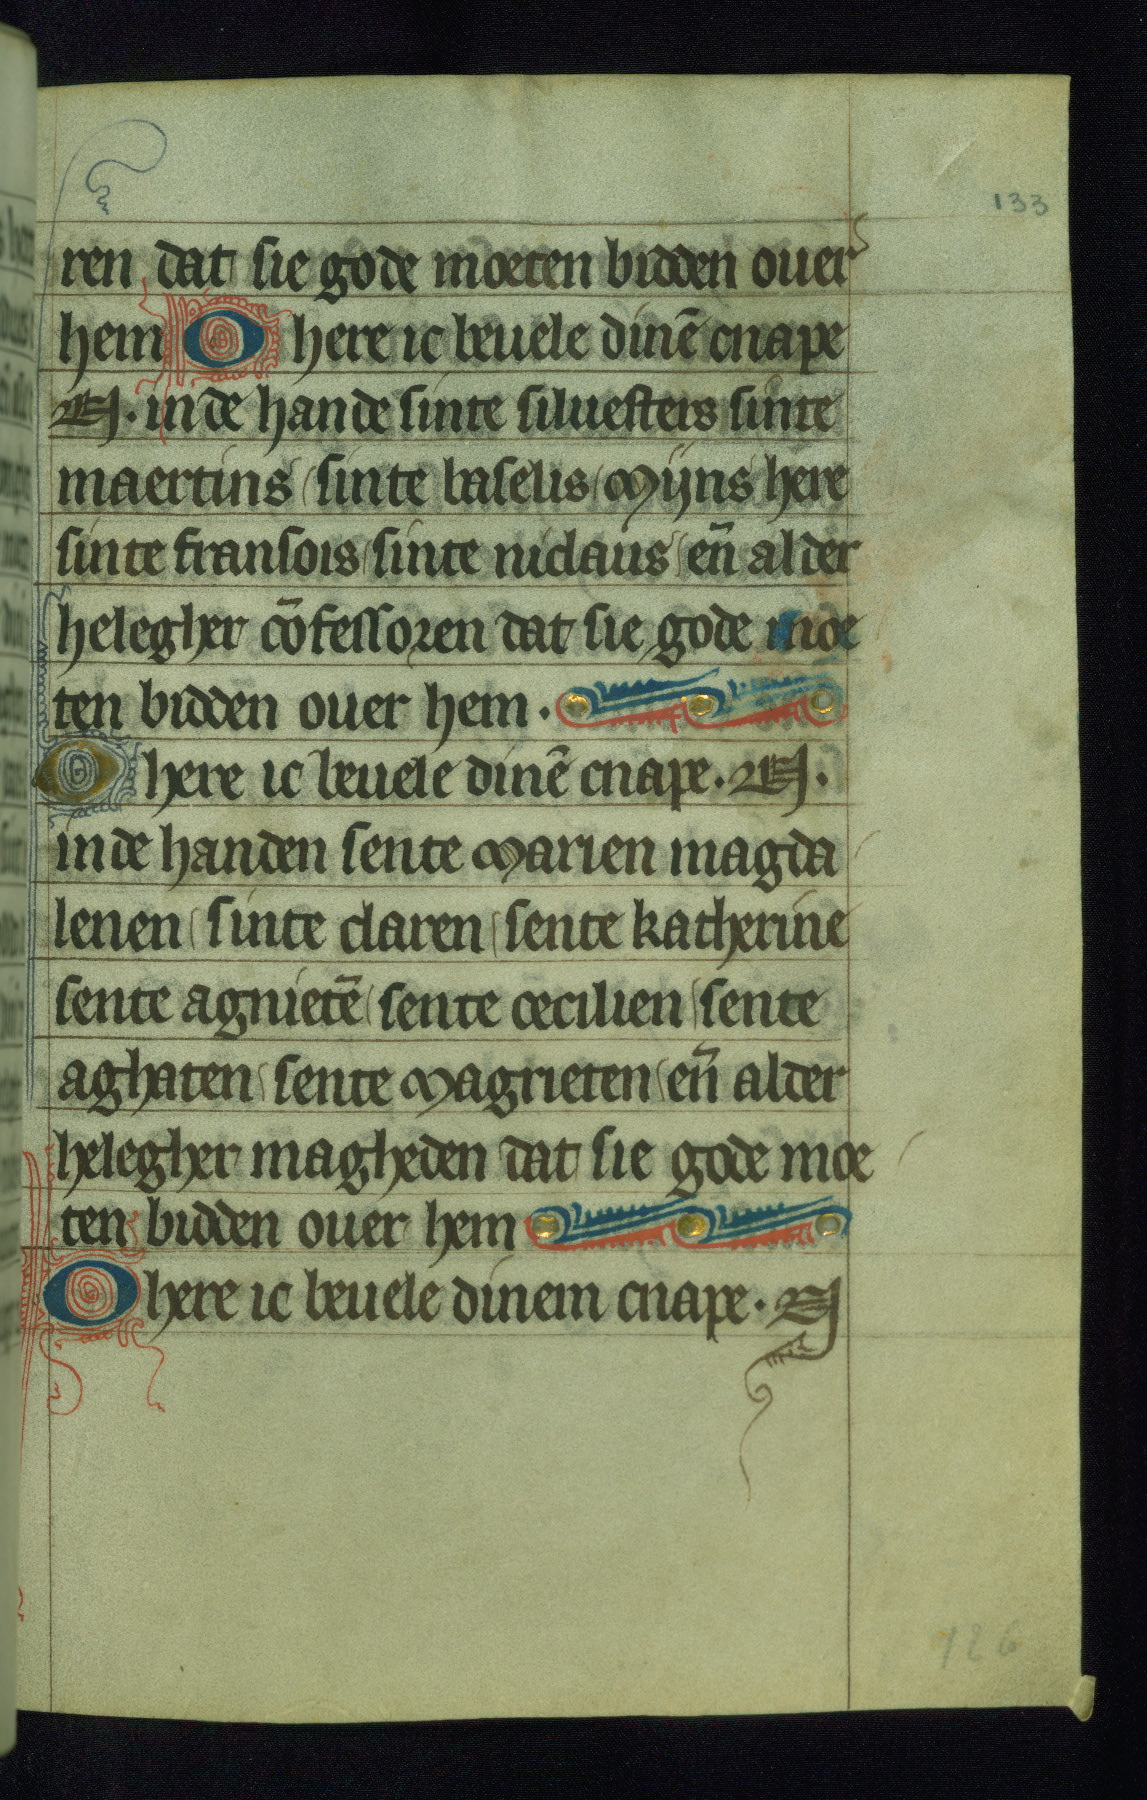 133
ren dat sie gode moeten bidden ouer
hem O here ic beuele dinē cnape
N. in de hande sinte siluesters sinte
maertins / sinte baselis / Mijns here
sinte fransois / sinte niclaus / eñ alder
helegher cōfessoren dat sie gode moe
ten bidden ouer hem .
O here ic beuele dinē cnape . N .
in de handen sente Marien magda
lenen / sinte claren / sente katherine
sente agnietē / sente cecilien / sente
aghaten / sente Magrieten / eñ alder
helegher magheden dat sie gode moe
ten bidden ouer hem
O here ic beuele dinem cnape . N
126